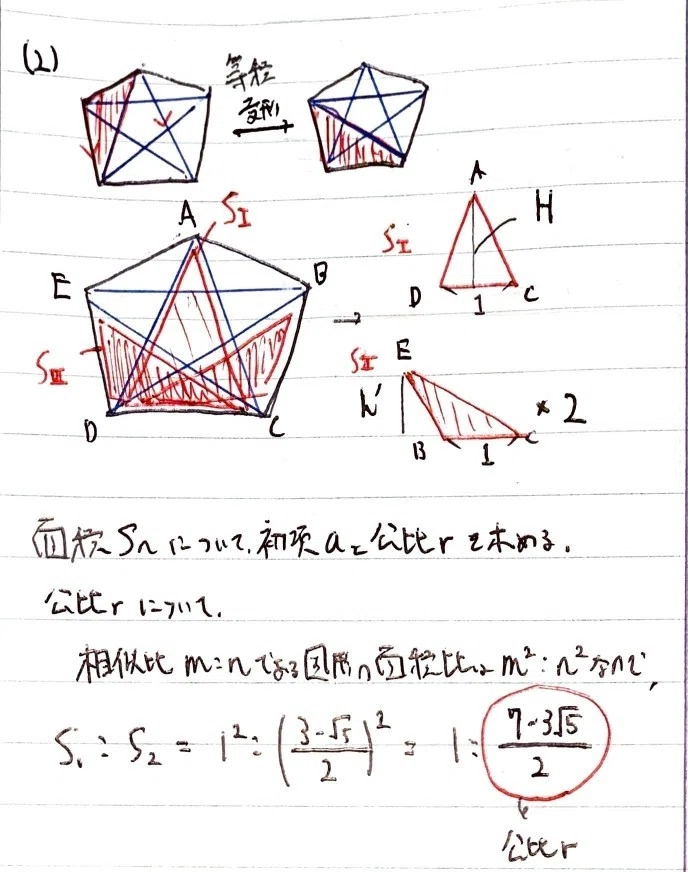 (2)
等積
変形
A
S_I
E
B
S_II
D
C
→
S_I
A
H
D
1
C
S_II
E
h'
B
1
C
× 2
面積 Sₙ について、初項 a と 公比 r を求める。
公比 r について、
相似比 m:n である図形の面積比は m² : n² なので、
S₁ : S₂ = 1² : ((3-√5)/2)² = 1 : (7-3√5)/2
公比 r